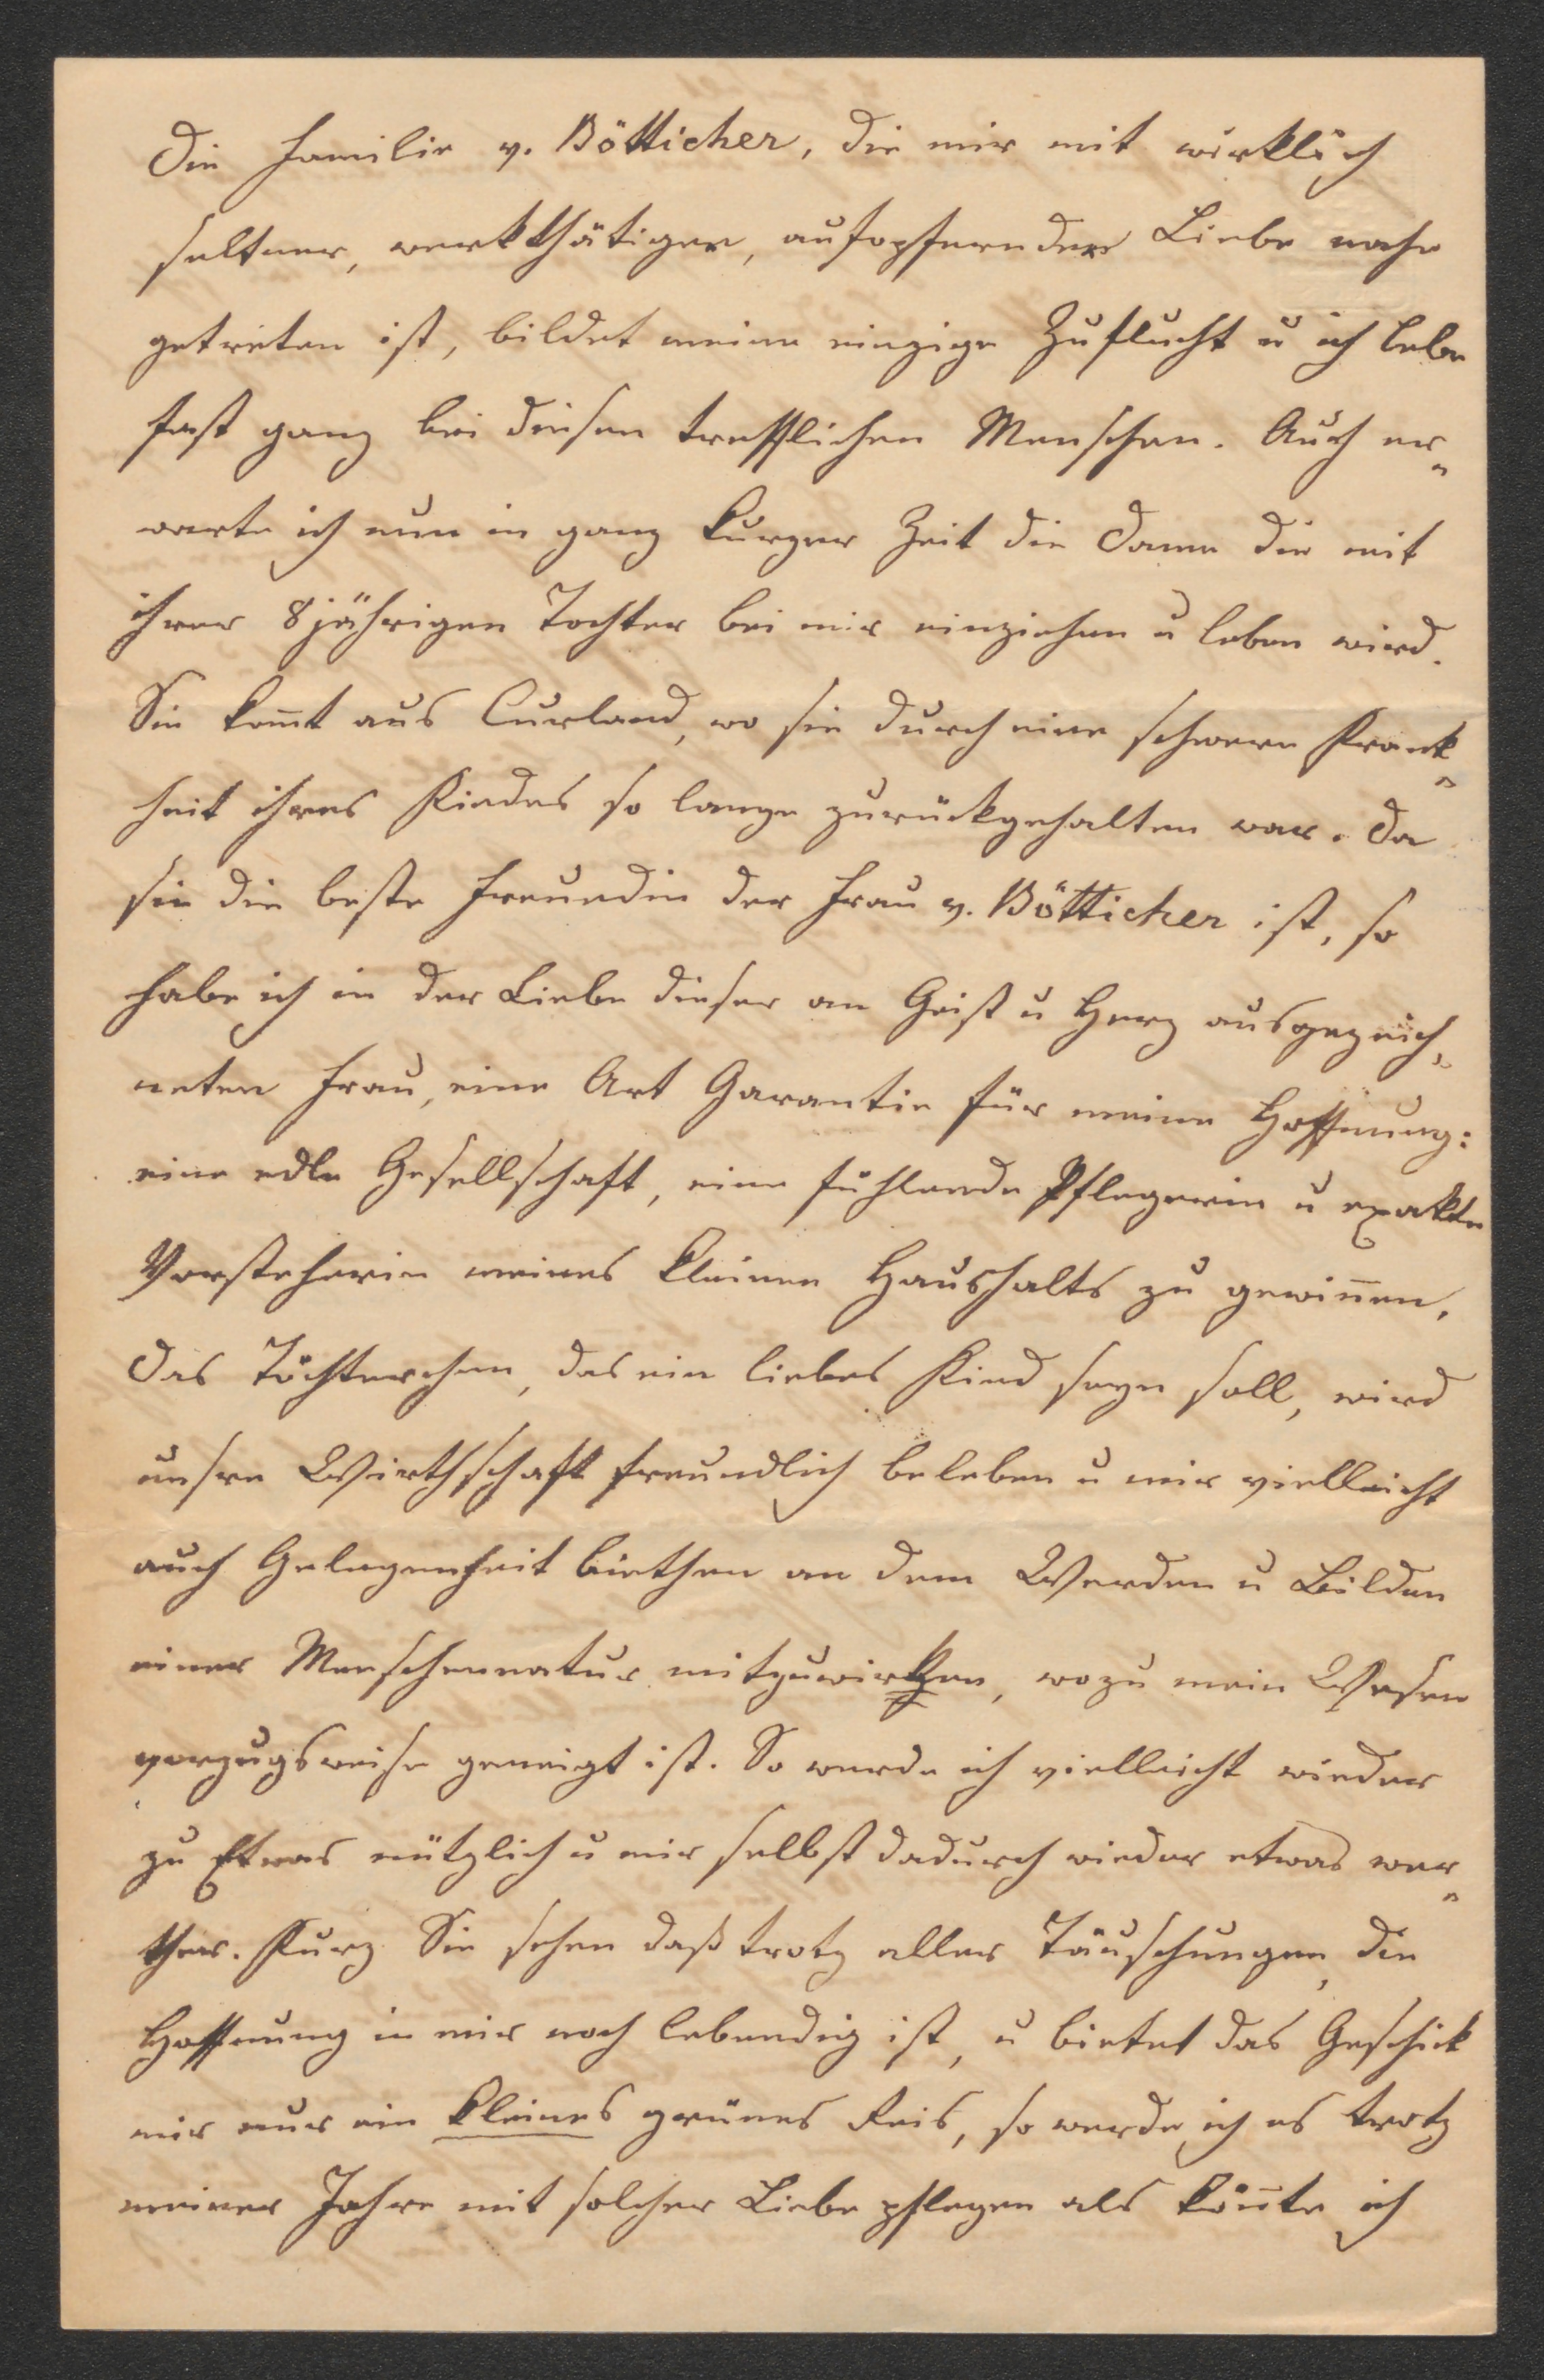 Die Familie v. Bötticher, die mir mit wirklich
seltner, werkthätiger, aufopfernder Liebe nahe
getreten ist, bildet meine einzige Zuflucht u ich lebe
fast ganz bei diesen trefflichen Menschen. Auch er-
warte ich nun in ganz kurzer Zeit die Dame die mit
ihrer 8jährigen Tochter bei mir einziehen u leben wird.
Sie kom̄t aus Curland, wo sie durch eine schwere Krank-
heit ihres Kindes so lange zurückgehalten war. Da
sie die beste Freundin der Frau v. Bötticher ist, so
habe ich in der Liebe dieser an Geist u Herz ausgezeich-
neten Frau, eine Art Garantie für meine Hoffnung:
eine edle Gesellschaft, eine fühlende Pflegerin u exakte
Vorsteherin meines kleinen Haushalts zu gewin̄en.
Das Töchterchen, das ein liebes Kind seyn soll, wird
unsre Wirthschaft freundlich beleben u mir vielleicht
auch Gelegenheit biethen an dem Werden u Bilden
einer Menschennatur mitzuwirken, wozu mein Wesen
vorzugsweise geneigt ist. So werde ich vielleicht wieder
zu Etwas nützlich u mir selbst dadurch wieder etwas wer-
ther. Kurz Sie sehen daß trotz aller Täuschungen, die
Hoffnung in mir noch lebendig ist, u bietet das Geschick
mir nur ein kleines grünes Reis, so werde ich es trotz
meiner Jahre mit solcher Liebe pflegen als kön̄te ich